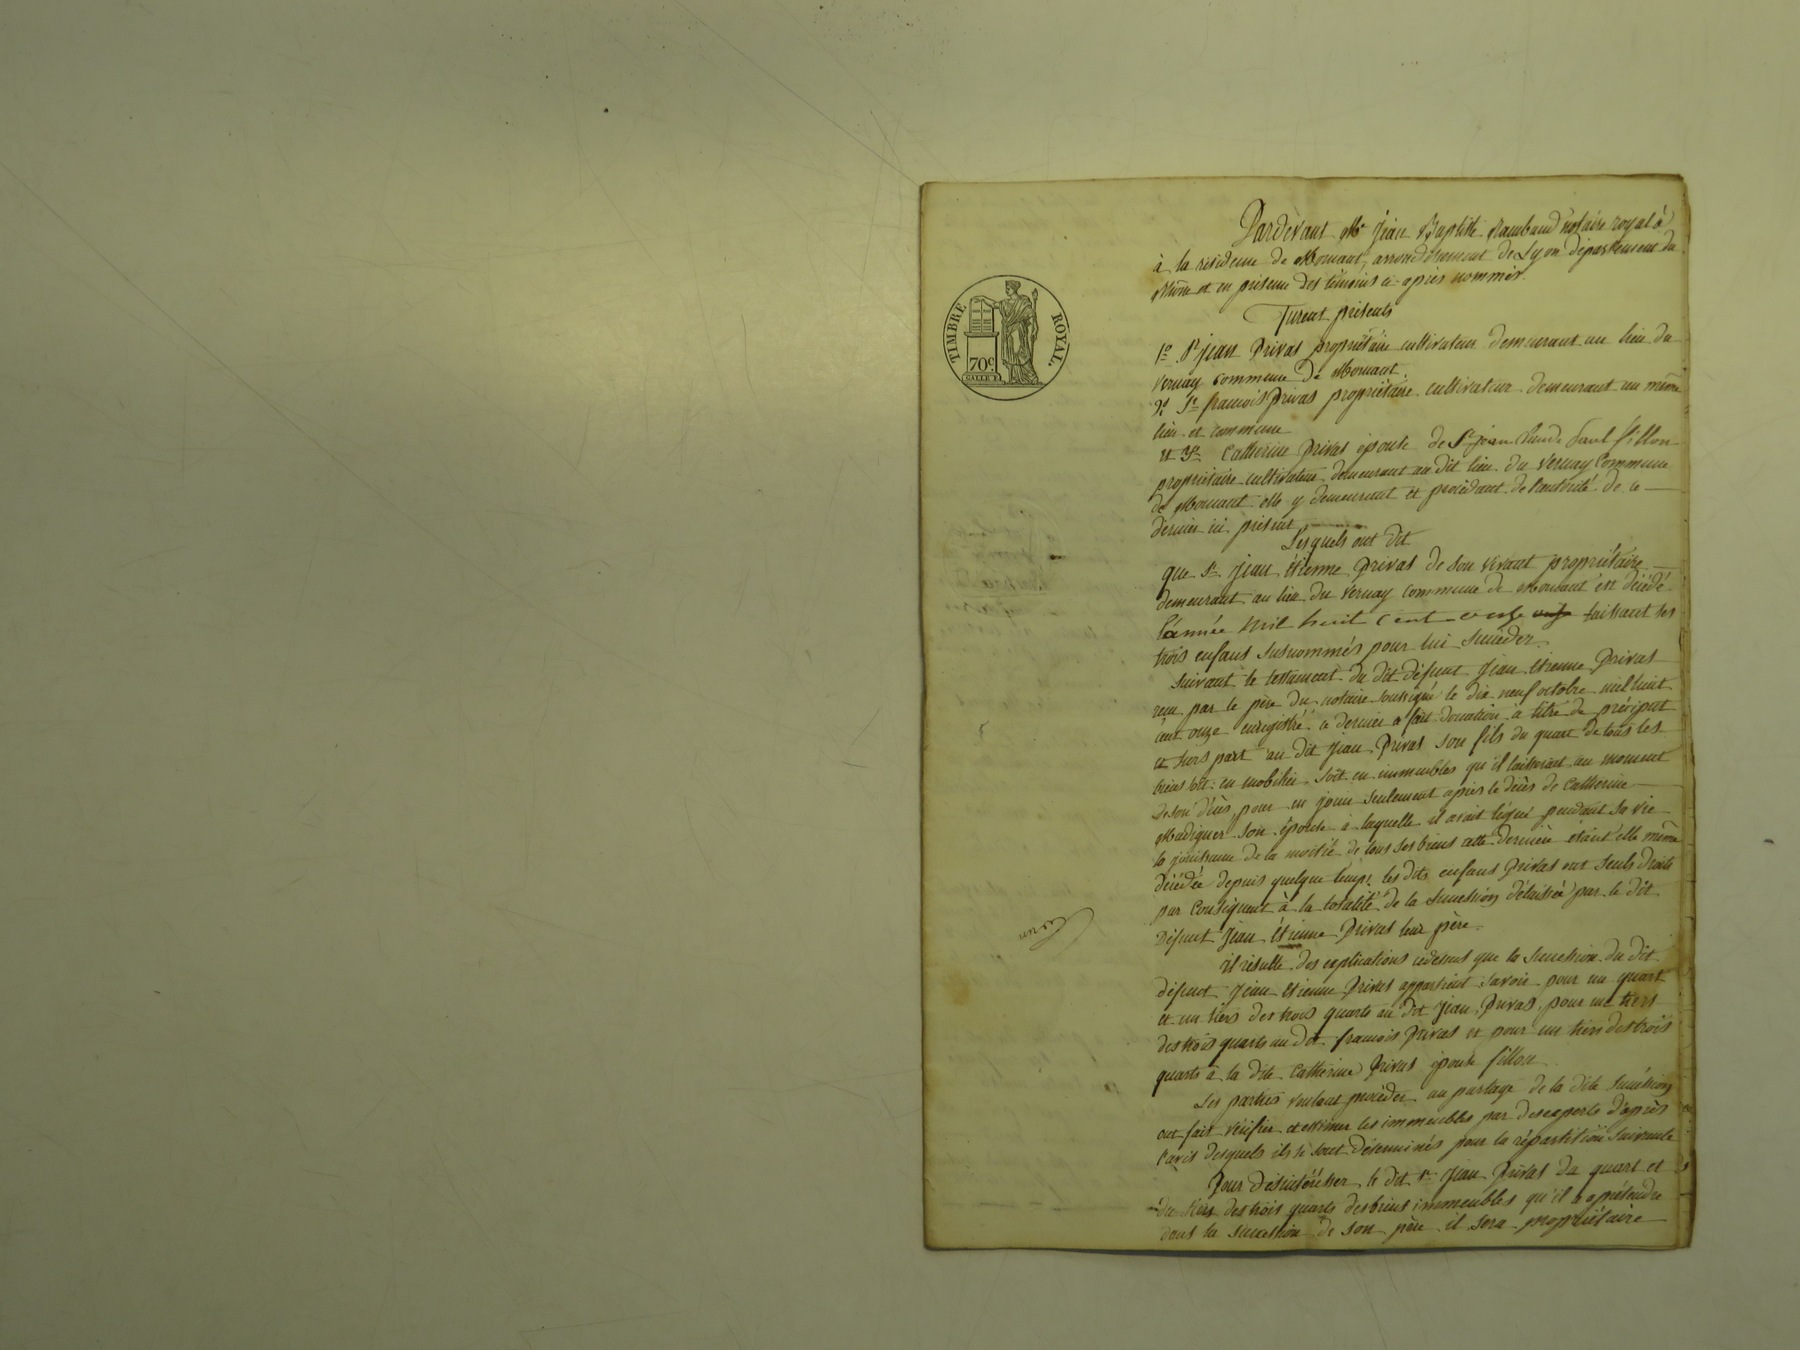 TIMBRE ROYAL.
70c
Pardevant Me Jean Baptiste Rambaud notaire royal à
à la résidence de Mornant, arrondissement de Lyon département du
Rhône et en présence des témoins ci-après nommés.
Furent présents
1o Sr jean Privas propriétaire cultivateur demeurant au lieu du
Vernay commune de Mornant.
2o Sr françois Privas propriétaire cultivateur demeurant au même
lieu et commune
et 3o Catherine Privas épouse de Sr jean Paul fillon
propriétaire cultivateur demeurant au dit lieu du Vernay Commune
de Mornant elle y demeurant et procédant de l'autorité de ce
dernier ici présent
Lesquels ont dit
que Sr Jean Etienne Privas de son vivant propriétaire
demeurant au lieu du Vernay commune de Mornant est décédé
l'année mil huit cent onze laissant ses
trois enfans susnommés pour lui succéder.
Suivant le testament du dit défunt Jean Etienne Privas
reçu par le père du notaire soussigné le dix neuf octobre mil huit
cent onze enregistré ce dernier a fait donation à titre de préciput
et hors part au dit Jean Privas son fils du quart de tous les
biens soit en mobilier soit en immeubles qu'il laisserait au moment
de son décès pour en jouir seulement après le décès de Catherine
son épouse à laquelle il avait légué pendant sa vie
la jouissance de la moitié de tous ses biens cette dernière étant elle même
décédée depuis quelque temps les dits enfans Privas ont seuls droits
par conséquent à la totalité de la succession délaissée par le dit
défunt Jean Etienne Privas leur père.
il résulte des explications cidessus que la succession du dit
défunt Jean Etienne Privas appartient savoir pour un quart
et un tiers des trois quarts au dit Jean Privas, pour un tiers
des trois quarts au dit françois Privas et pour un tiers des trois
quarts à la dite Catherine Privas épouse fillon.
Les parties voulant procéder au partage de la dite succession
ont fait vérifier et estimer les immeubles par des experts d'après
l'avis desquels ils se sont déterminés pour la répartition suivante
Pour désintéresser le dit Sr Jean Privas du quart et
du tiers des trois quarts des biens immeubles qu'il a à prétendre
dans la succession de son père il sera propriétaire